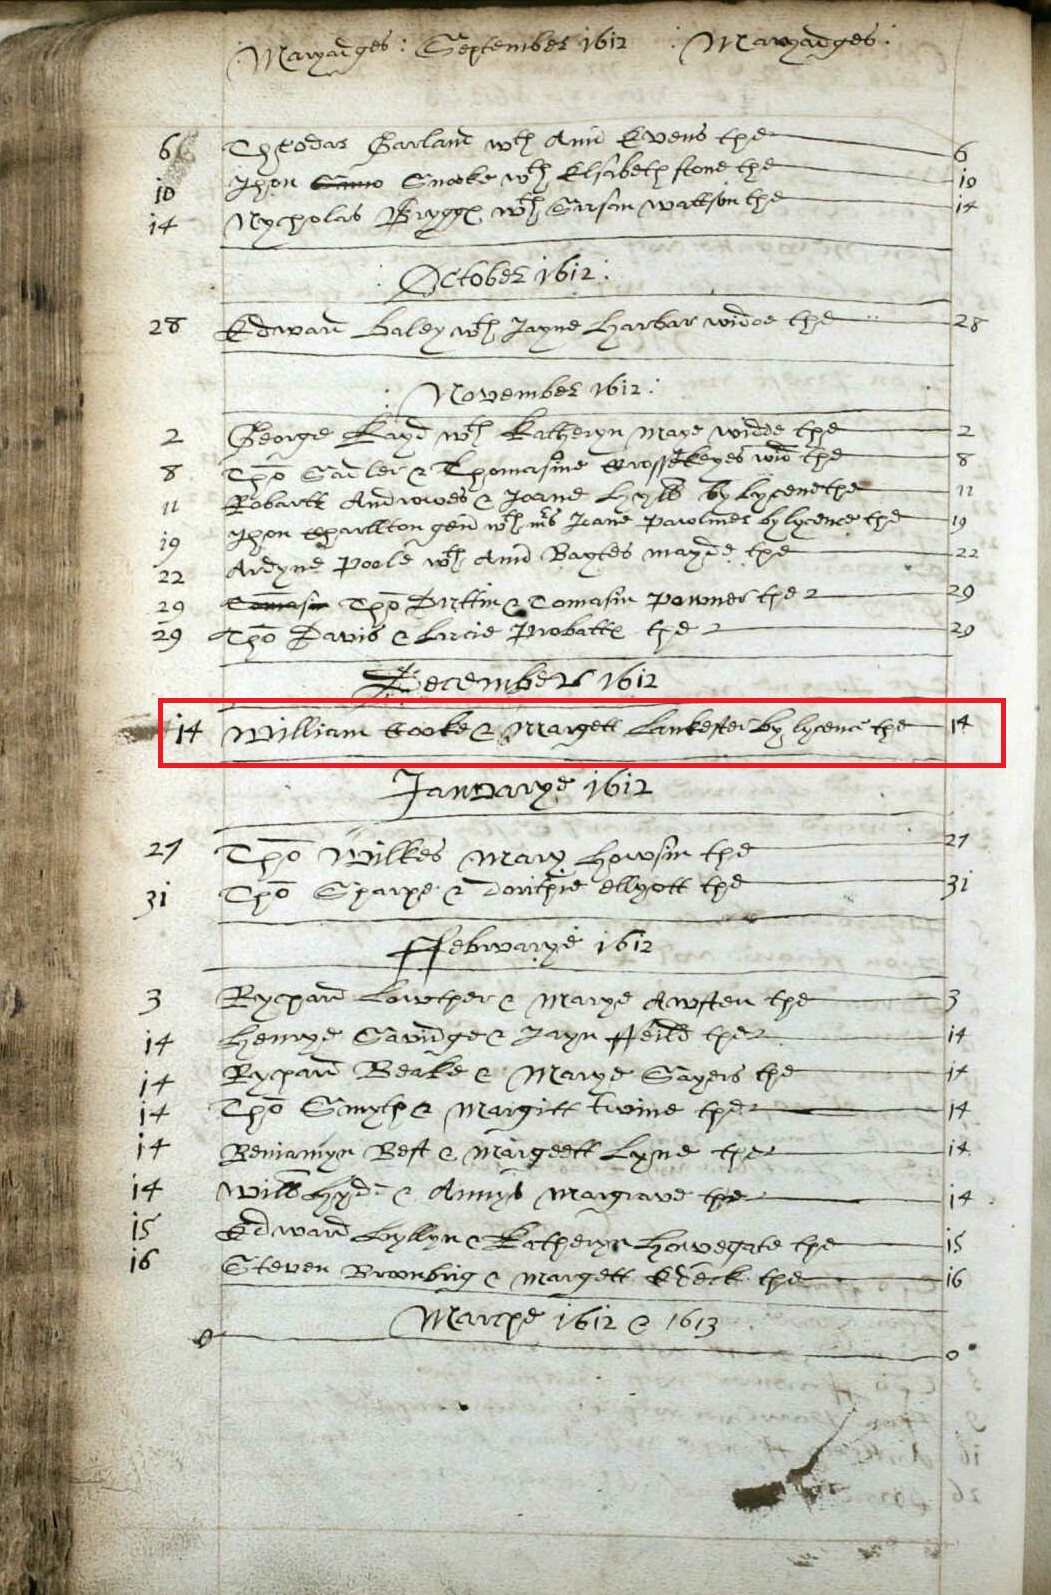 : Maryadges : September 1612 : Maryadges :
6 Garland wth Ann Evens the 6
10 Jhon Snooke wth Elsabeth stone the 10
14 Nycholas Brygge wth Sarson wattson the 14
: October 1612 :
28 Edward Baley wth Jayne Harbar widoe the 28
: November 1612 :
2 George wth Katheryn Maye widoe the 2
8 Tho Sadler & Thomasine Crosskeyes wid the 8
11 Robartt Androwes & Joane Hylls by lycence the 11
19 Jhon Charllton gen wth mrs Jeane Pawlmer by lycence the 19
22 Ardyne Poole wth Ann Baytes mayde the 22
29 Tho & Tomasin Powner the 29
29 Tho Davis & the 29
December 1612
14 William Cooke & Margett Lankester by lycence the 14
Januarye 1612
27 Tho Wilkes Mary Howson the 27
31 Tho Sharpe & Dorithie ellyott the 31
ffebruarye 1612
3 Rychard Lowther & Marye Awsten the 3
14 Henrye Savidge & Jayn ffeild the 14
14 Rychard Beake & Marye Sayers the 14
14 Tho Smyth & Margitt Twine the 14
14 Beniamyn Best & Margeett Lyne the 14
14 Will Hyde & Annys Margrave the 14
15 Edward Lyllyn & Katheryn Howegate the 15
16 Steven & Margett the 16
Marche 1612 & 1613
0 0